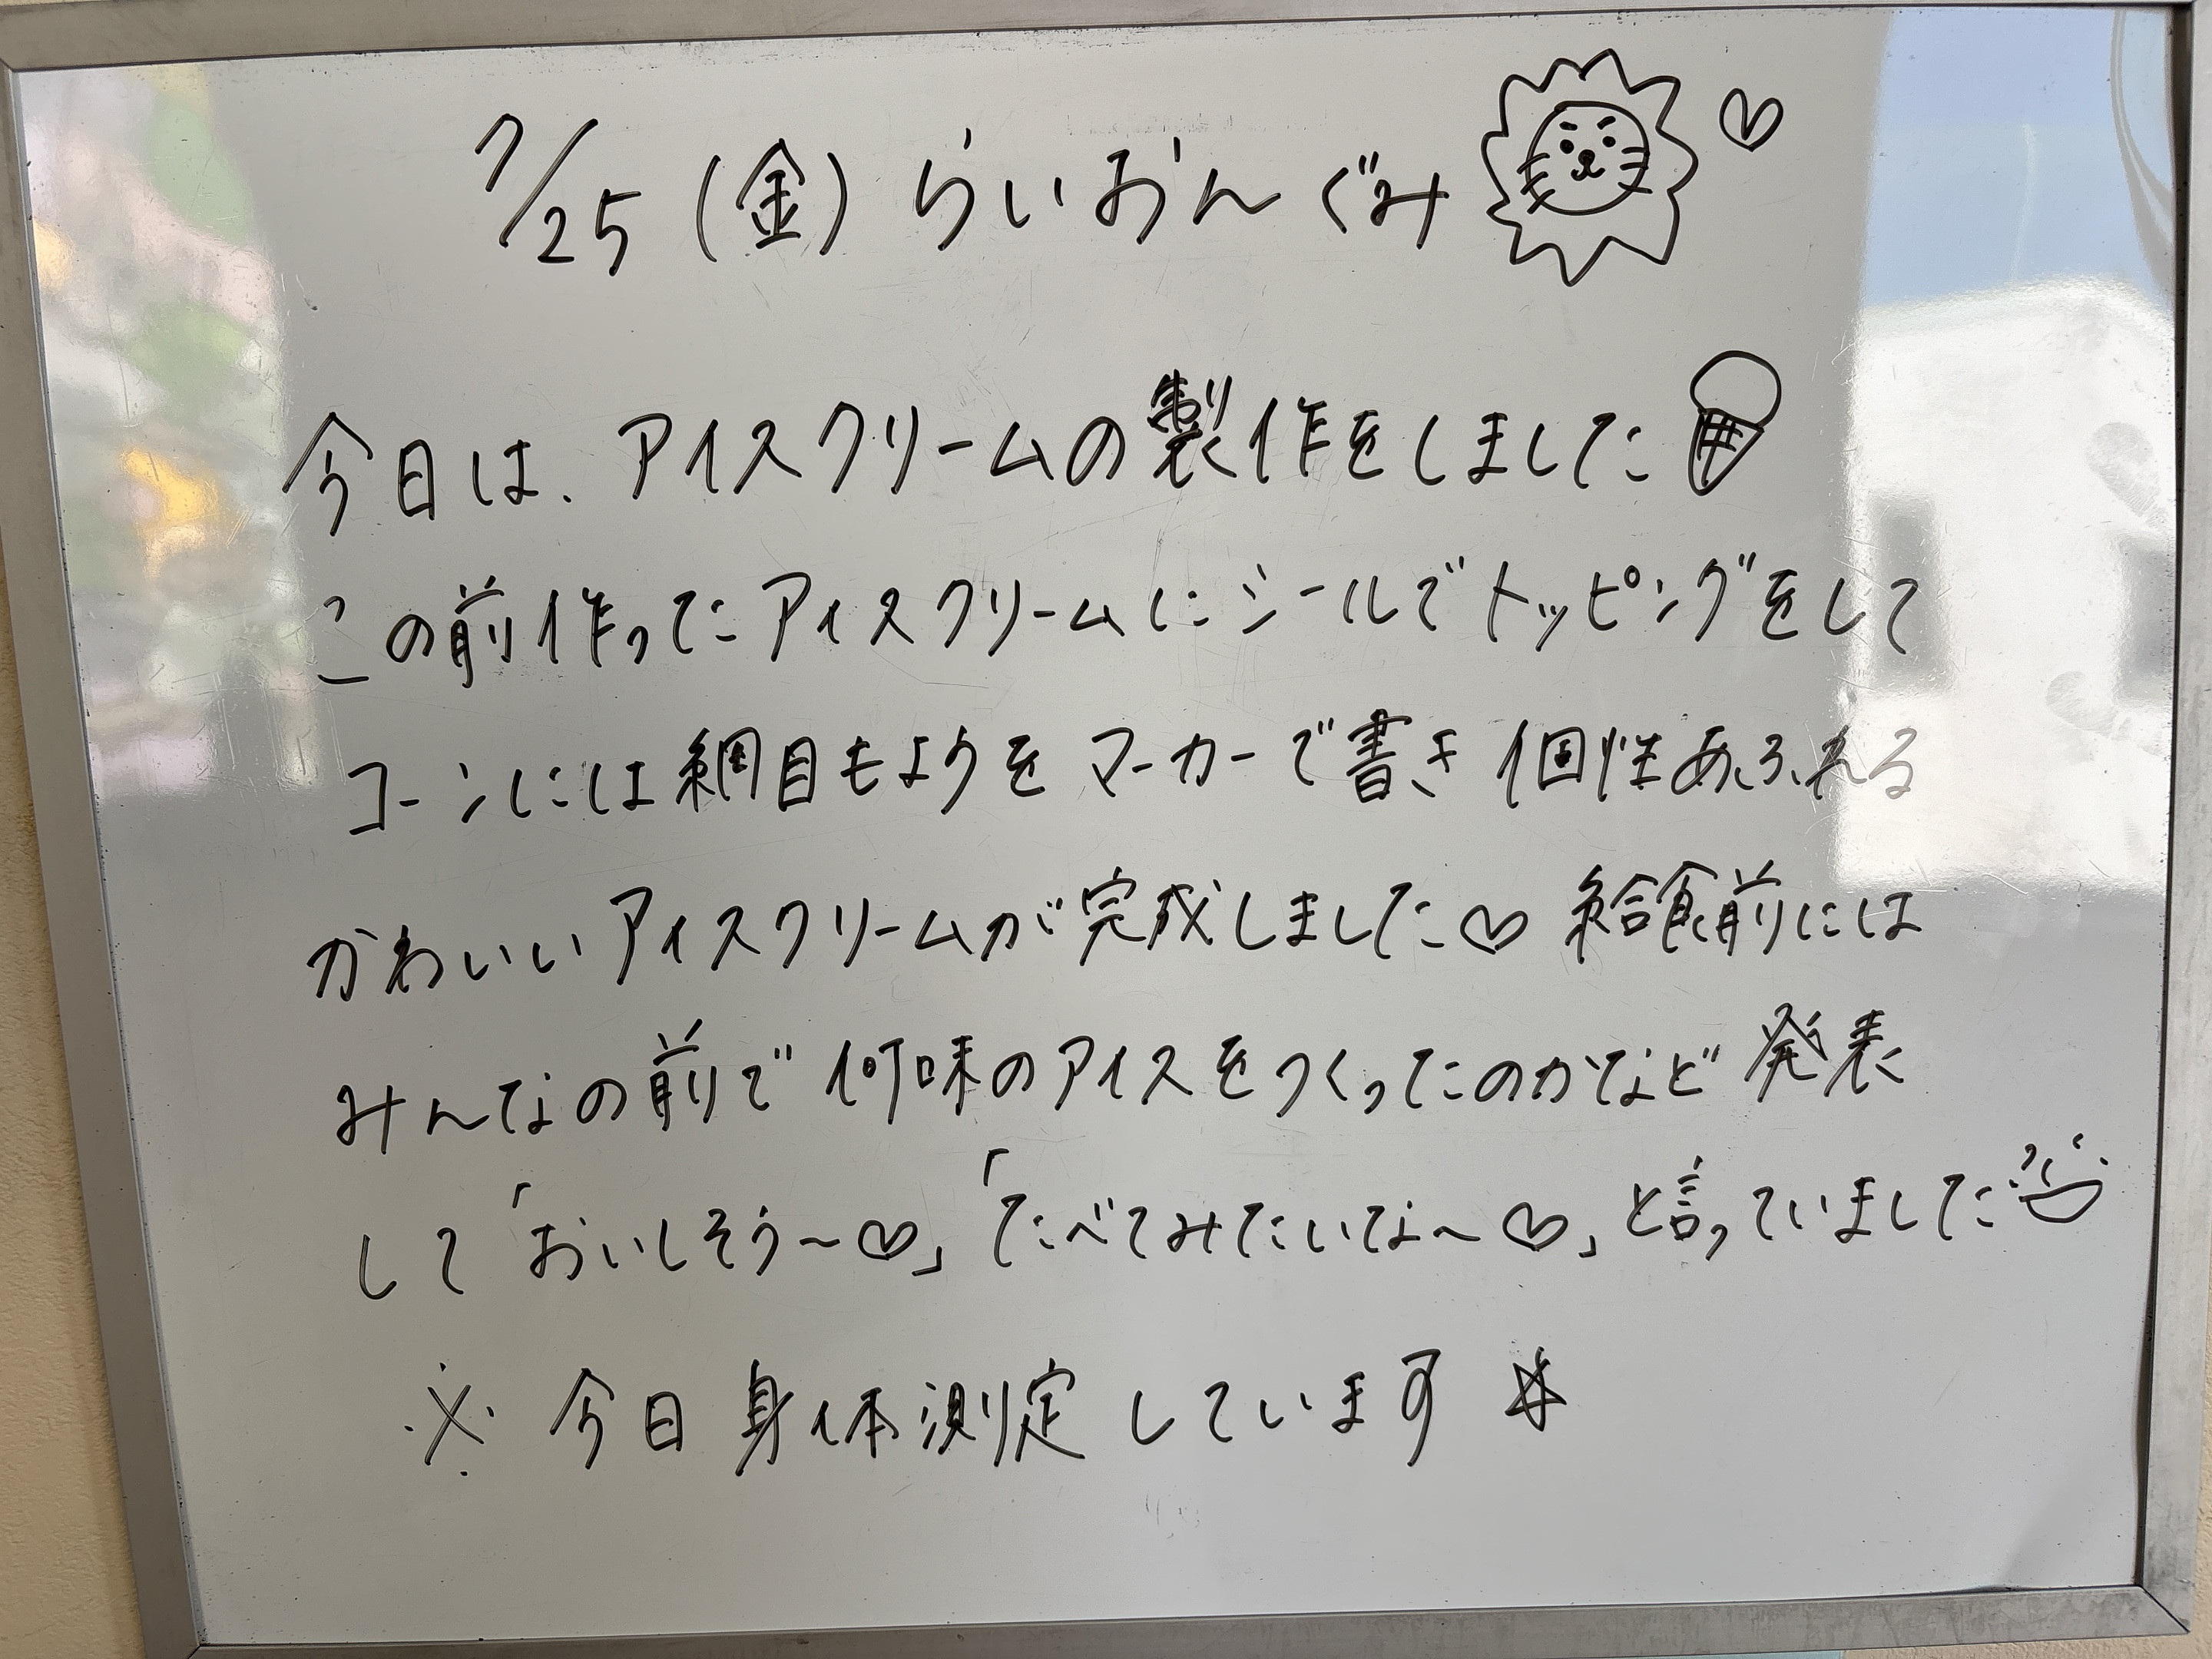 7/25(金)らいおんぐみ♡
今日は、アイスクリームの製作をしました
この前作ったアイスクリームにシールでトッピングをして
コーンには網目もようをマーカーで書き個性あふれる
かわいいアイスクリームが完成しました♡給食前には
みんなの前で何味のアイスをつくったのかなど発表
して「おいしそう〜♡」「たべてみたいな〜♡」と言っていました
※今日身体測定しています☆